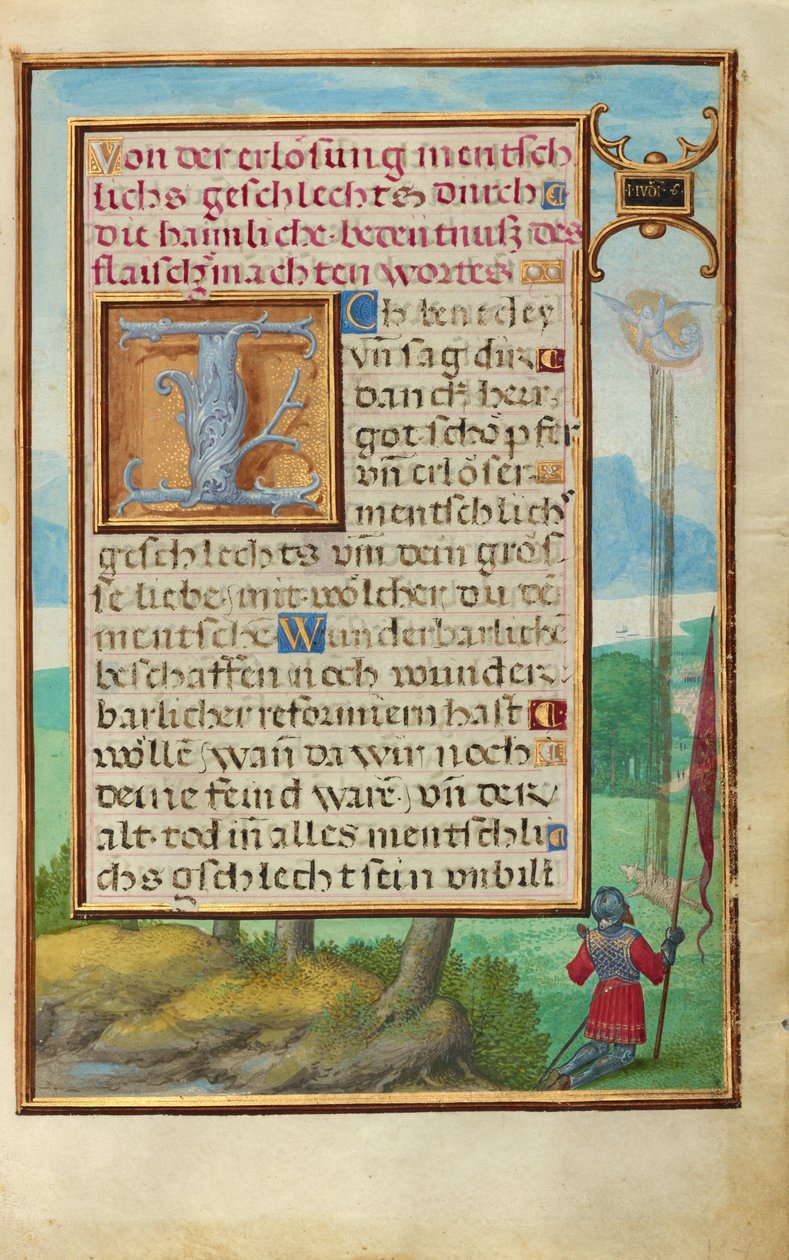 Von der erlösung mentsch
lichs geschlechts durch
die haimliche bedeütnusz des
flaischgmachten wortes
I·IVDI·6·
ICh benedey
vñ sag dir
danck herr
got schöpfer
vñ erlöser
mentschlichs
geschlechts vm̃ dein grös
se liebe mit wölcher du dē
mentschē Wunderbarlichē
beschaffen noch wunder
barlicher reformiern hast
wöllē wañ da wir noch
deine feind warē vñ der
alt tod in̄ alles mentschli
chs gschlecht sein vnbill